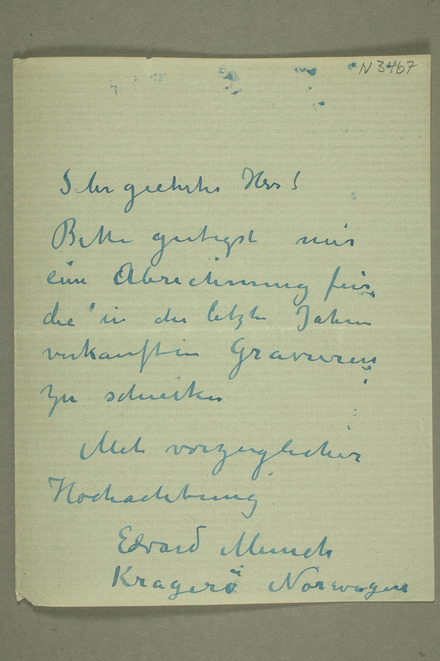 N 3467
Sehr geehrter Herr!
Bitte gütigst mir
eine Abrechnung für
die in der letzten Jahren
verkauften Gravuren
zu schicken
Mit vorzüglicher
Hochachtung
Edvard Munch
Kragerö Norwegen